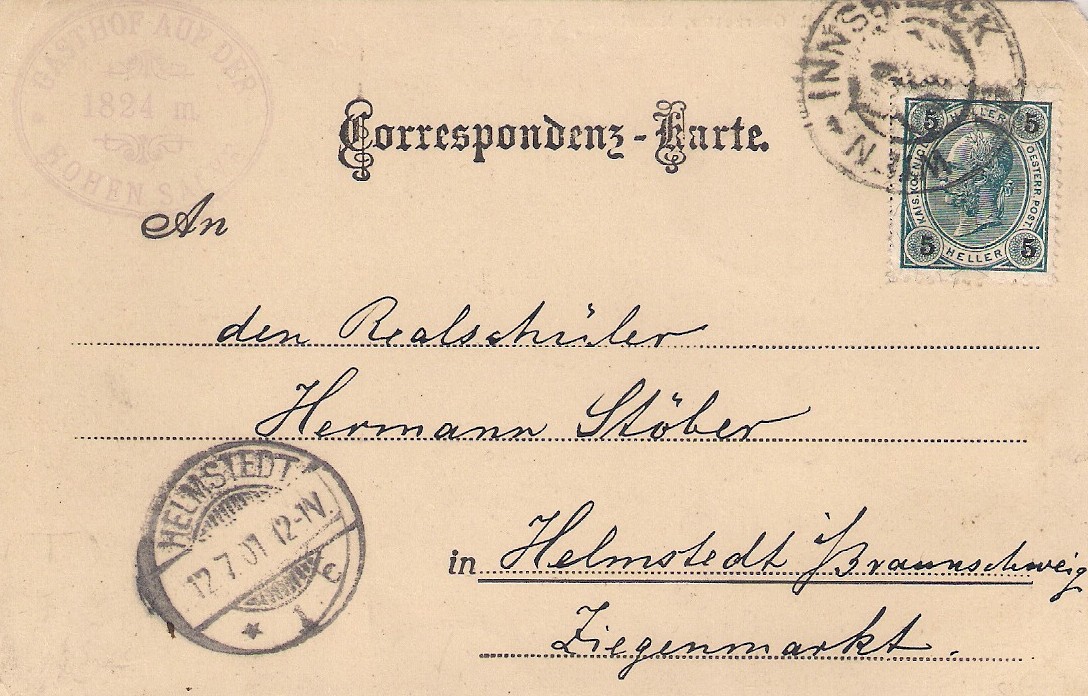 GASTHOF AUF DER
1824 m.
HOHEN
INNSBRUCK
Correspondenz-Karte.
5 HELLER 5
KAIS. KOENIGL. OESTERR. POST.
5 HELLER 5
An
den Realschüler
Hermann Stöber
HELMSTEDT
12.7.01 12-1N.
* 1 c
in Helmstedt i/Braunschweig
Ziegenmarkt.